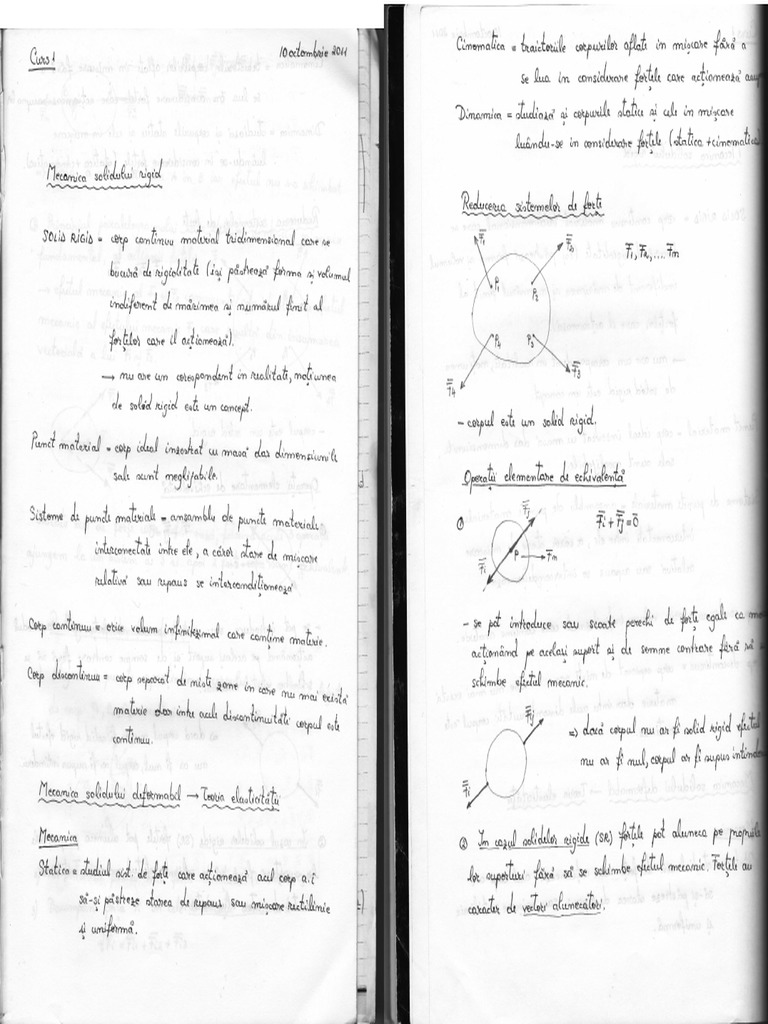 Curs 1
10 octombrie 2011
Mecanica solidului rigid
SOLID RIGID = corp continuu material tridimensional care se
bucură de rigiditate (își păstrează forma și volumul
indiferent de mărimea și numărul finit al
forțelor care îl acționează).
→ nu are un corespondent in realitate, noțiunea
de solid rigid este un concept.
Punct material = corp ideal inzestrat cu masă dar dimensiunile
sale sunt neglijabile.
Sisteme de puncte materiale = ansamblu de puncte materiale
interconectate intre ele, a căror stare de mișcare
relativă sau repaus se intercondiționează
Corp continuu = orice volum infinitezimal care conține materie.
Corp discontinuu = corp separat de niste zone in care nu mai există
materie dar intre acele discontinuități corpul este
continuu.
Mecanica solidului deformabil → Teoria elasticității
Mecanica
Statica = studiul sist. de forțe care acționează acel corp a.i
să-și păstreze starea de repaus sau mișcare rectilinie
și uniformă.
Cinematica = traictoriile corpurilor aflate in mișcare fără a
se lua in considerare forțele care acționează
Dinamica = studiază și corpurile statice și cele in miscare
luându-se in considerare forțele (statica + cinematica
Reducerea sistemelor de forțe
F̅1 F̅2 F̅1, F̅2, .... F̅n
P1 P2
P4 P3
F̅4 F̅3
- corpul este un solid rigid.
Operații elementare de echivalență
① F̅j F̅i + F̅j = 0̅
P F̅n
F̅i
- se pot introduce sau scoate perechi de forțe egale ca
acționând pe același suport și de semne contrare fără să
schimbe efectul mecanic.
F̅j
=> dacă corpul nu ar fi solid rigid efectul
nu ar fi nul, corpul ar fi supus
F̅i
② In cazul solidelor rigide (SR) forțele pot aluneca pe propriile
lor suporturi fără să se schimbe efectul mecanic. Forțele au
caracter de vectori alunecători.